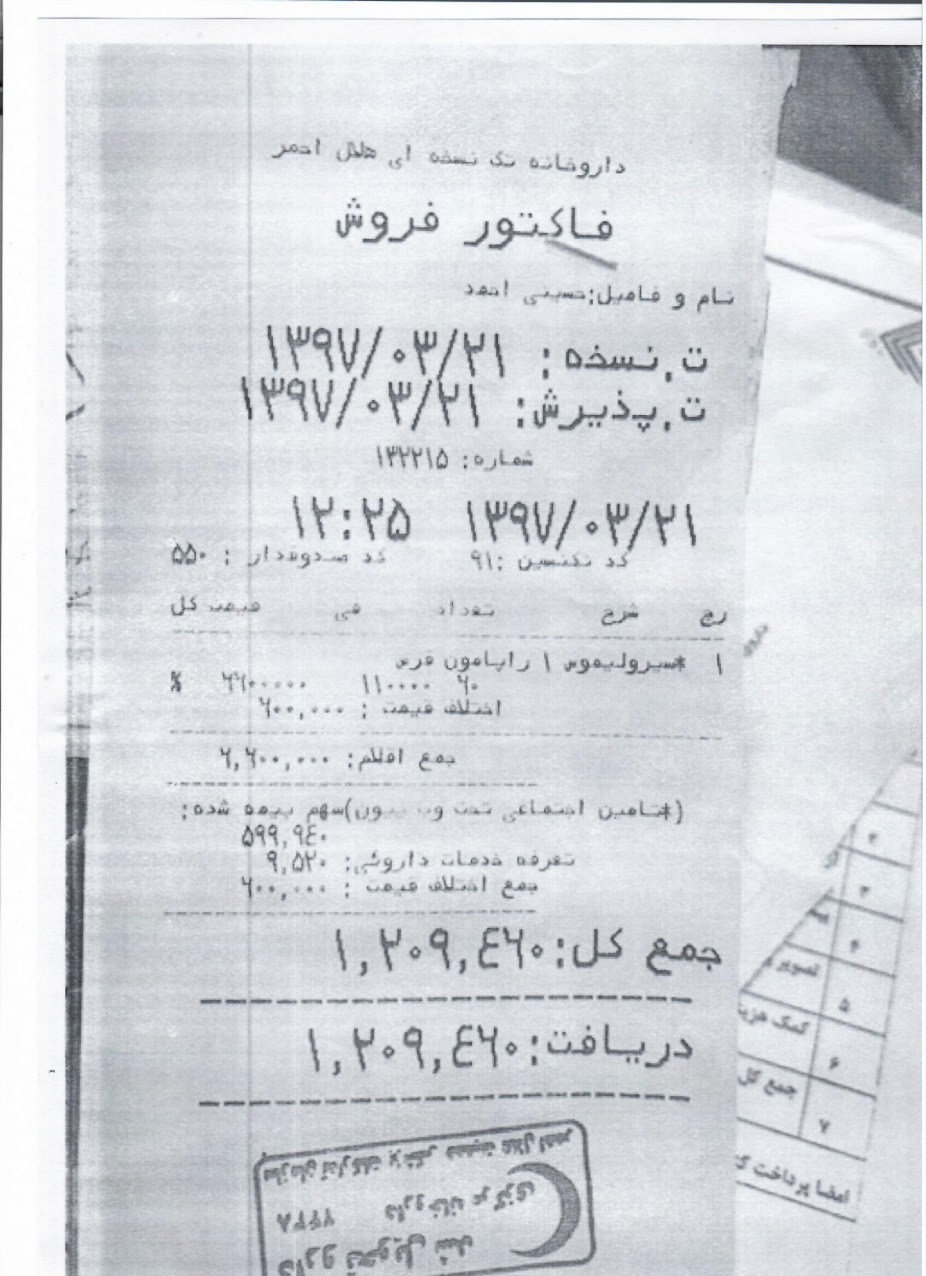 داروخانه تک نسخه ای هلال احمر
فاکتور فروش
نام و فامیل:حسینی احمد
ت.نسخه: ۱۳۹۷/۰۳/۲۱
ت.پذیرش: ۱۳۹۷/۰۳/۲۱
شماره: ۱۳۲۲۱۵
۱۳۹۷/۰۳/۲۱ ۱۲:۲۵
کد تکنسین :۹۱ کد صندوقدار : ۵۵۰
رج شرح تعداد فی قیمت کل
۱ *سیرولیموس ۱ راپامون قرص
۶۰ ۱۱۰۰۰۰ ۶۶۰۰۰۰۰ %
اختلاف قیمت : ۶۰۰,۰۰۰
جمع اقلام: ۶,۶۰۰,۰۰۰
(*تامین اجتماعی تحت وب بیون)سهم بیمه شده:
۵۹۹,۹٤۰
تعرفه خدمات داروئی: ۹,۵۲۰
جمع اختلاف قیمت : ۶۰۰,۰۰۰
جمع کل: ۱,۲۰۹,٤۶۰
دریافت: ۱,۲۰۹,٤۶۰
سازمان تدارکات پزشکی جمعیت هلال احمر
داروخانه مرکزی
تحویل شد
۲
۳
۴
تصویر
۵
کمک هزینه
۶
جمع کل
۷
امضا پرداخت